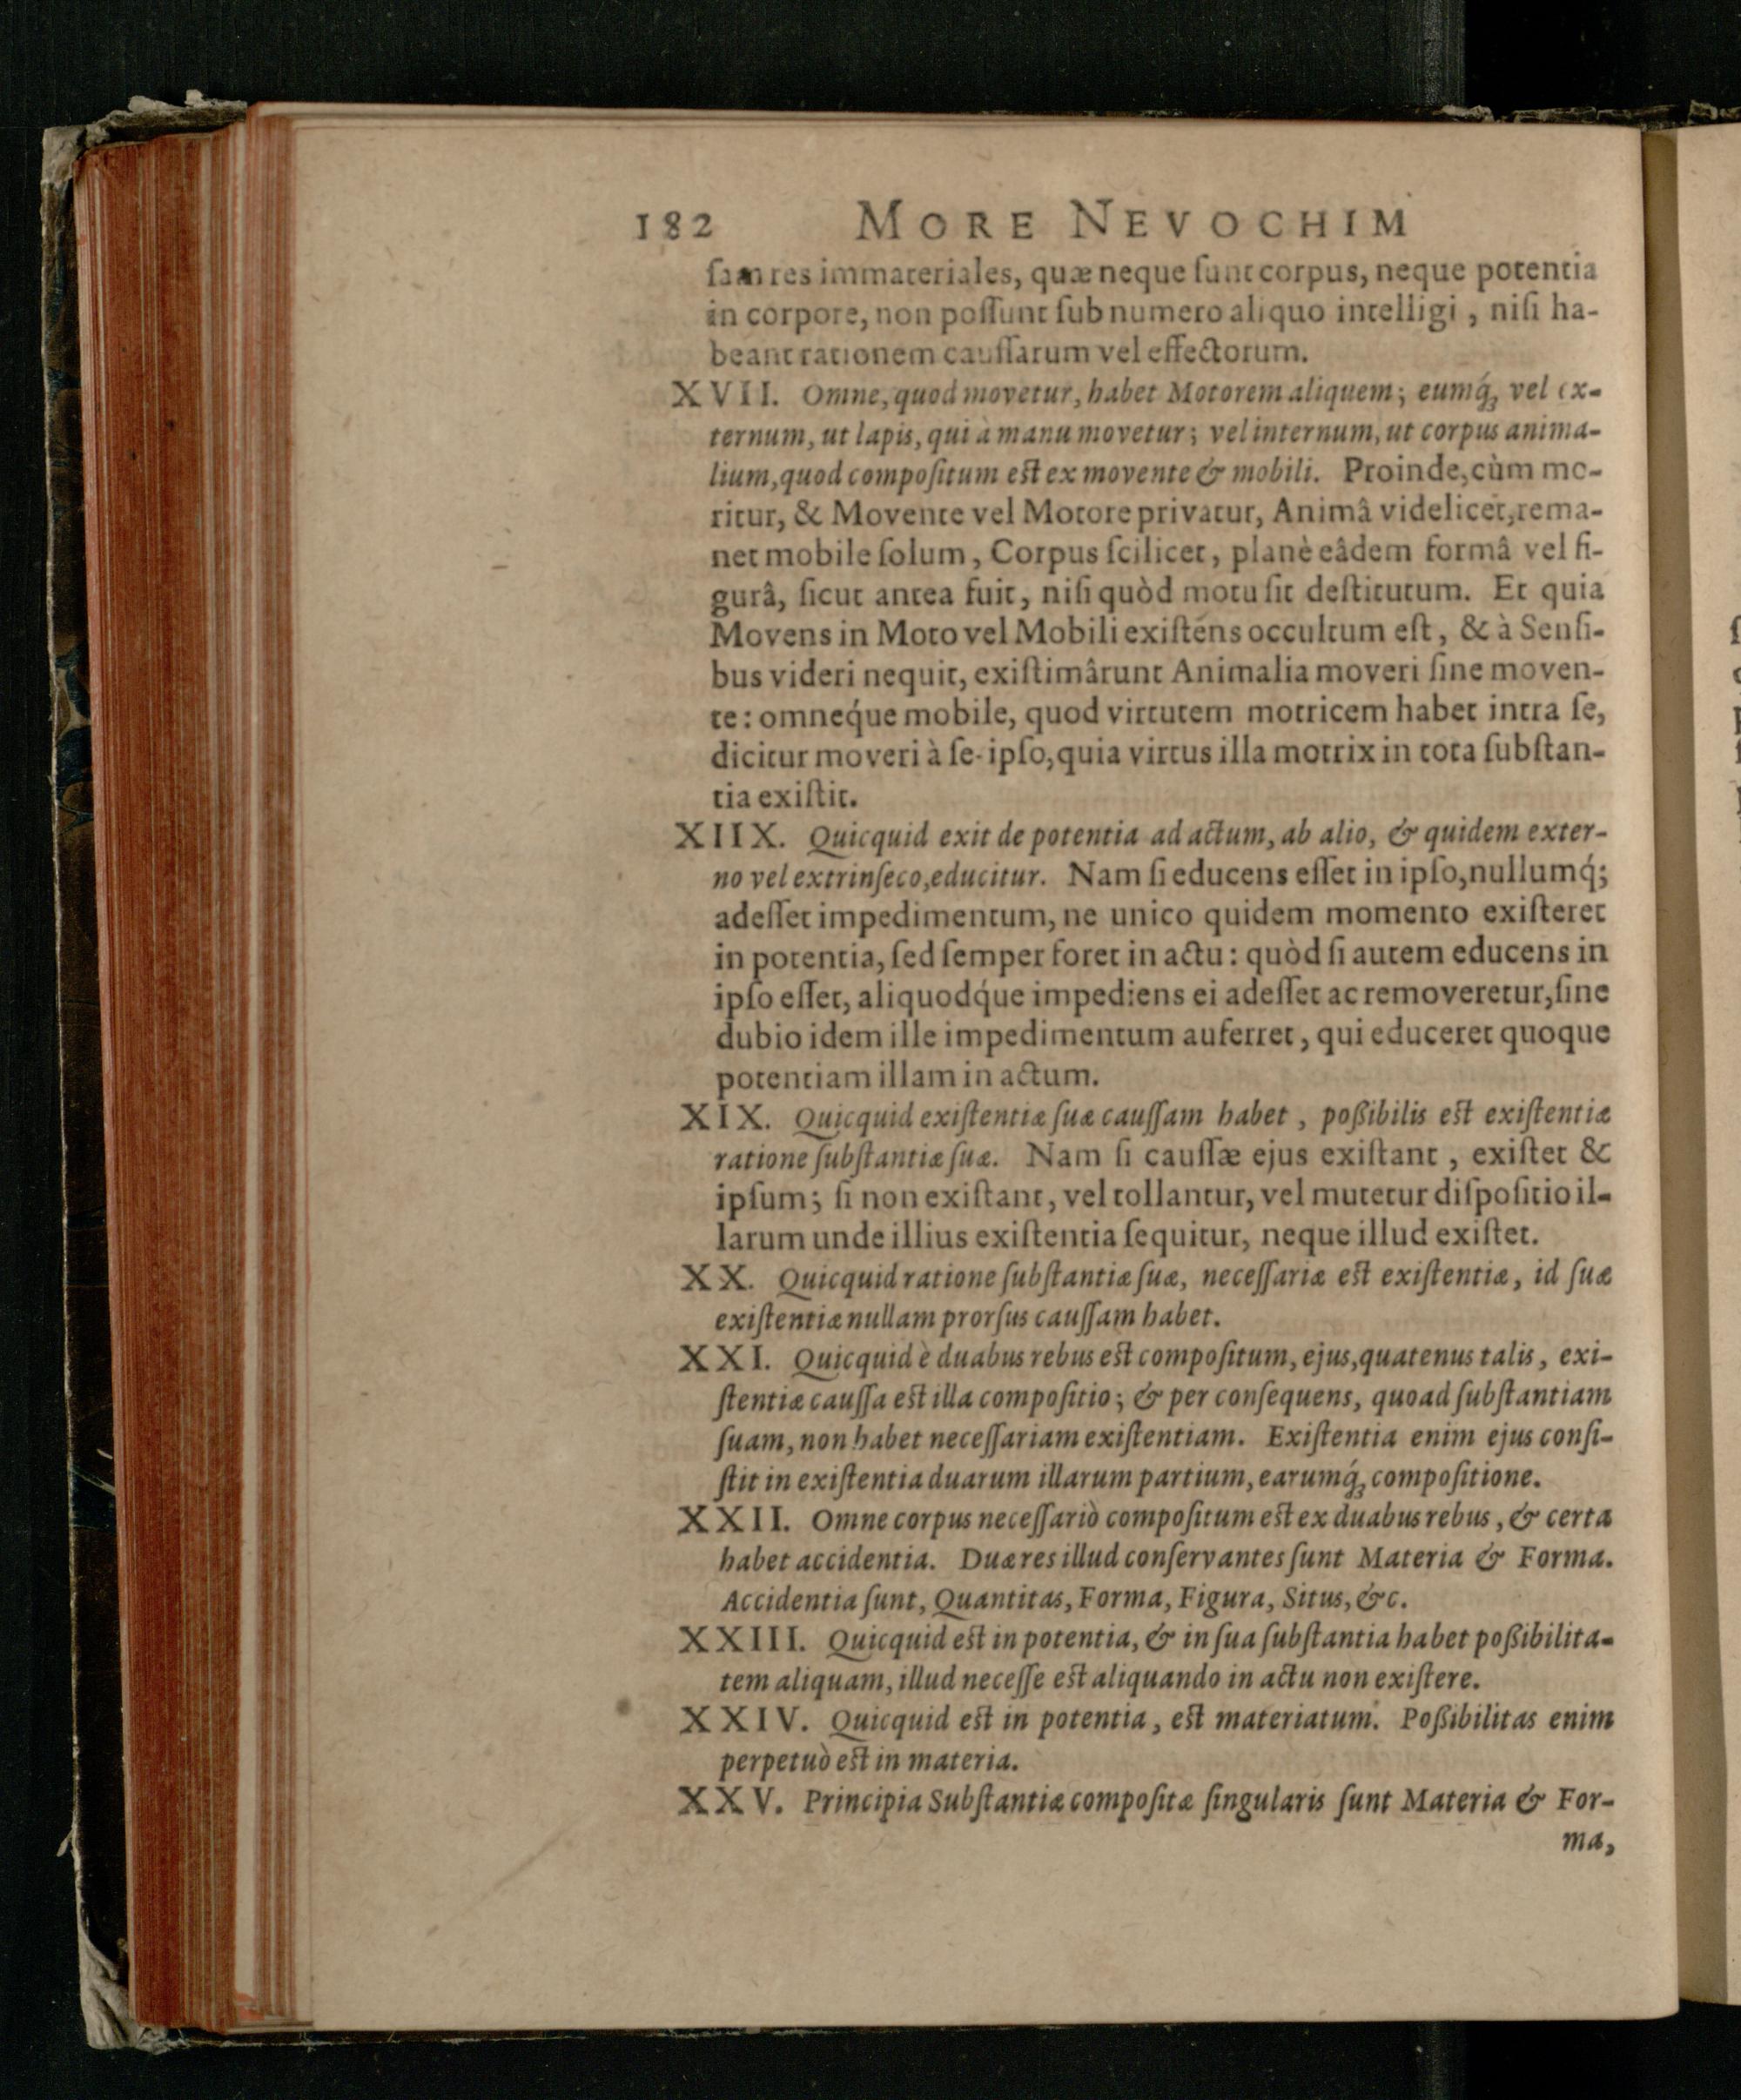 182 MORE NEVOCHIM
ſam res immateriales, quæ neque ſunt corpus, neque potentia
in corpore, non poſſunt ſub numero aliquo intelligi, niſi ha-
beant rationem cauſſarum vel effectorum.
XVII. Omne, quod movetur, habet Motorem aliquem; eumq́ꝫ vel ex-
ternum, ut lapis, qui à manu movetur; vel internum, ut corpus anima-
lium, quod compoſitum eſt ex movente & mobili. Proinde, cùm mo-
ritur, & Movente vel Motore privatur, Animâ videlicet, rema-
net mobile ſolum, Corpus ſcilicet, planè eâdem formâ vel fi-
gurâ, ſicut antea fuit, niſi quòd motu ſit deſtitutum. Et quia
Movens in Moto vel Mobili exiſtens occultum eſt, & à Senſi-
bus videri nequit, exiſtimârunt Animalia moveri ſine moven-
te: omneq́ue mobile, quod virtutem motricem habet intra ſe,
dicitur moveri à ſe-ipſo, quia virtus illa motrix in tota ſubſtan-
tia exiſtit.
XIIX. Quicquid exit de potentia ad actum, ab alio, & quidem exter-
no vel extrinſeco, educitur. Nam ſi educens eſſet in ipſo, nullumq́;
adeſſet impedimentum, ne unico quidem momento exiſteret
in potentia, ſed ſemper foret in actu: quòd ſi autem educens in
ipſo eſſet, aliquodq́ue impediens ei adeſſet ac removeretur, ſine
dubio idem ille impedimentum auferret, qui educeret quoque
potentiam illam in actum.
XIX. Quicquid exiſtentiæ ſuæ cauſſam habet, poßibilis eſt exiſtentiæ
ratione ſubſtantiæ ſuæ. Nam ſi cauſſæ ejus exiſtant, exiſtet &
ipſum; ſi non exiſtant, vel tollantur, vel mutetur diſpoſitio il-
larum unde illius exiſtentia ſequitur, neque illud exiſtet.
XX. Quicquid ratione ſubſtantiæ ſuæ, neceſſariæ eſt exiſtentiæ, id ſuæ
exiſtentiæ nullam prorſus cauſſam habet.
XXI. Quicquid è duabus rebus eſt compoſitum, ejus, quatenus talis, exi-
ſtentiæ cauſſa eſt illa compoſitio; & per conſequens, quoad ſubſtantiam
ſuam, non habet neceſſariam exiſtentiam. Exiſtentia enim ejus conſi-
ſtit in exiſtentia duarum illarum partium, earumq́ꝫ compoſitione.
XXII. Omne corpus neceſſariò compoſitum eſt ex duabus rebus, & certa
habet accidentia. Duæ res illud conſervantes ſunt Materia & Forma.
Accidentia ſunt, Quantitas, Forma, Figura, Situs, &c.
XXIII. Quicquid eſt in potentia, & in ſua ſubſtantia habet poßibilita-
tem aliquam, illud neceſſe eſt aliquando in actu non exiſtere.
XXIV. Quicquid eſt in potentia, eſt materiatum. Poßibilitas enim
perpetuò eſt in materia.
XXV. Principia Subſtantiæ compoſitæ ſingularis ſunt Materia & For-
ma,